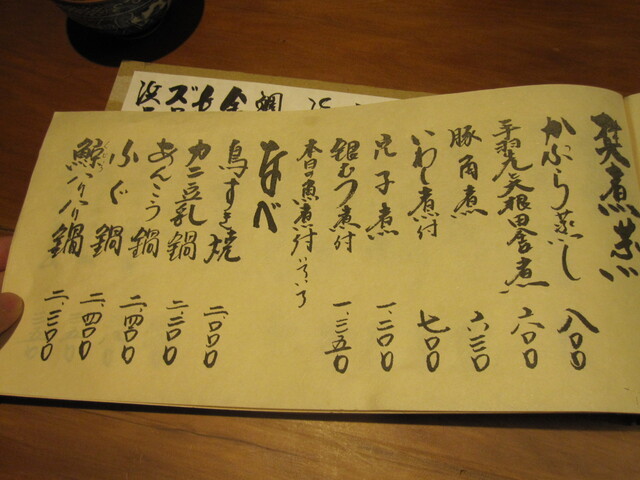 焚煮蒸
かぶら蒸し 八〇〇
手羽先大根田舎煮 六〇〇
豚角煮 六三〇
いわし煮付 七〇〇
真子煮 一、二〇〇
銀むつ煮付 一、三五〇
本日の魚煮付 いろいろ
なべ
鳥すき焼 二、〇〇〇
カニ豆乳鍋 二、二〇〇
あんこう鍋 二、四〇〇
ふぐ鍋 二、四〇〇
鯨ハリハリ鍋 二、三〇〇